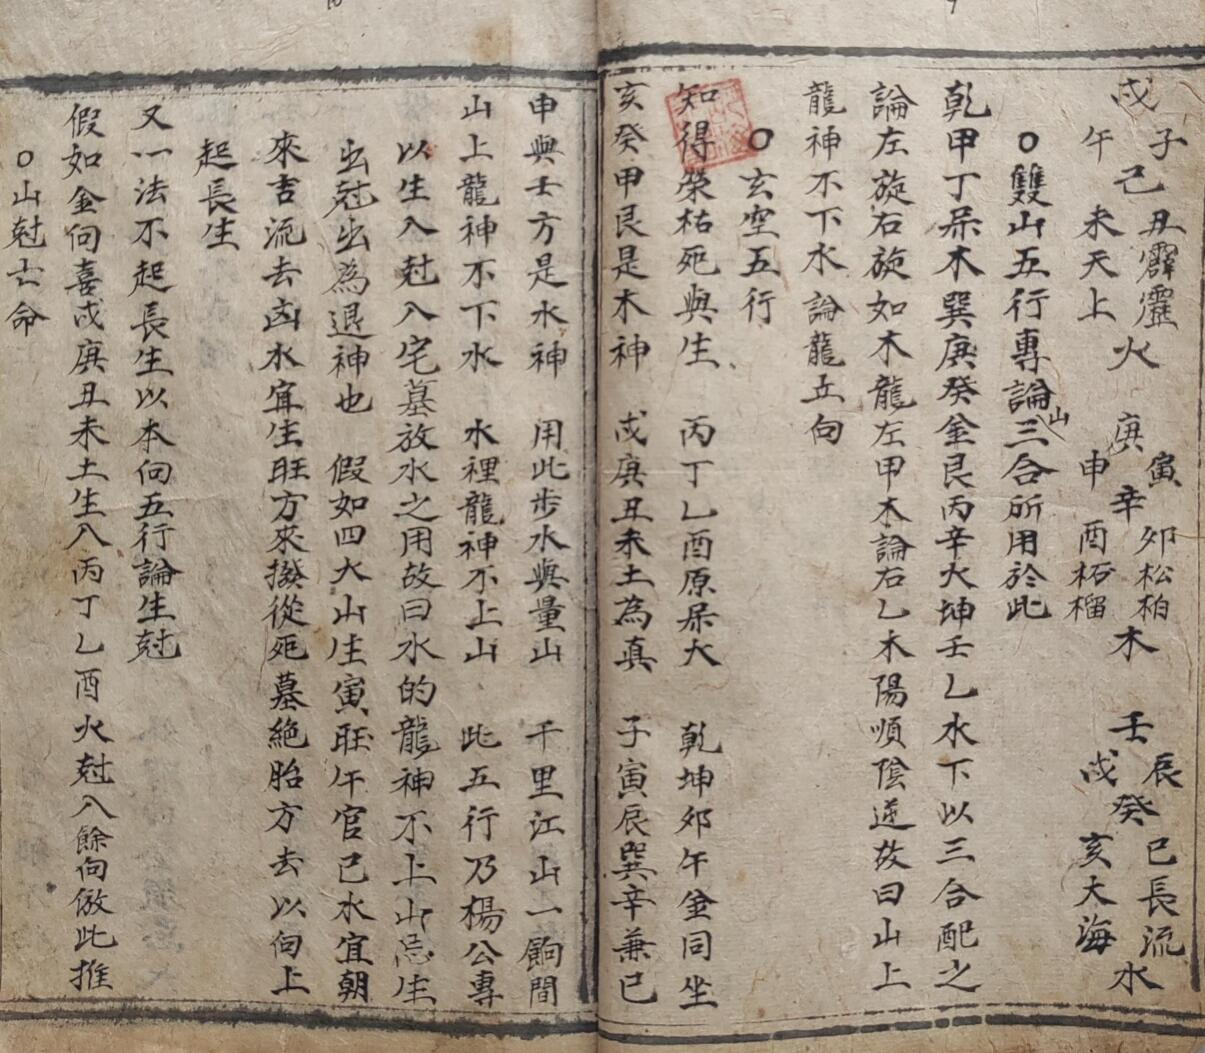 戊子己丑霹靂火 庚寅辛卯松柏木 壬辰癸巳長流水
午未天上 申酉柘榴 戌亥大海
○雙山五行專論三合所用於此
山
乾甲丁杲木巽庚癸金艮丙辛火坤壬乙水下以三合配之
論左旋右旋如木龍左甲木論右乙木陽順陰逆故曰山上
龍神不下水 論龍立向
○玄空五行
知得榮枯死與生 丙丁乙酉原杲火 乾坤卯午金同坐
亥癸甲艮是木神 戌庚丑未土為真 子寅辰巽辛兼巳
申與壬方是水神 用此步水與量山 千里江山一餉間
山上龍神不下水 水裡龍神不上山 此五行乃楊公專
以生入尅入宅墓放水之用故曰水的龍神不上山忌生
出尅出為退神也 假如四大山生寅旺午官巳水宜朝
來吉流去凶水宜生旺方來撥從死墓絕胎方去以向上
起長生
又一法不起長生以本向五行論生尅
假如金向喜戌庚丑未土生入丙丁乙酉火尅入餘向倣此推
○山尅亡命